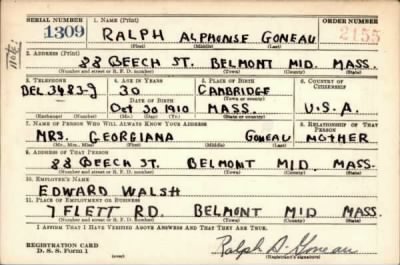 SERIAL NUMBER 1. NAME (Print) ORDER NUMBER
1309 RALPH ALPHONSE GONEAU 2155
(First) (Middle) (Last)
2. ADDRESS (Print)
88 BEECH ST. BELMONT MID. MASS.
(Number and street or R. F. D. number) (Town) (County) (State)
3. TELEPHONE 4. AGE IN YEARS 5. PLACE OF BIRTH 6. COUNTRY OF CITIZENSHIP
BEL 3483-J 30 CAMBRIDGE
DATE OF BIRTH (Town or county)
Oct 30 1910 MASS. U.S.A.
(Exchange) (Number) (Mo.) (Day) (Yr.) (State or country)
7. NAME OF PERSON WHO WILL ALWAYS KNOW YOUR ADDRESS 8. RELATIONSHIP OF THAT PERSON
MRS. GEORGIANA GONEAU MOTHER
(Mr., Mrs., Miss) (First) (Middle) (Last)
9. ADDRESS OF THAT PERSON
88 BEECH ST. BELMONT MID. MASS.
(Number and street or R. F. D. number) (Town) (County) (State)
10. EMPLOYER'S NAME
EDWARD WALSH
11. PLACE OF EMPLOYMENT OR BUSINESS
7 FLETT RD. BELMONT MID MASS
(Number and street or R. F. D. number) (Town) (County) (State)
I AFFIRM THAT I HAVE VERIFIED ABOVE ANSWERS AND THAT THEY ARE TRUE.
REGISTRATION CARD
D. S. S. Form 1 Ralph A. Goneau
(Registrant's signature)